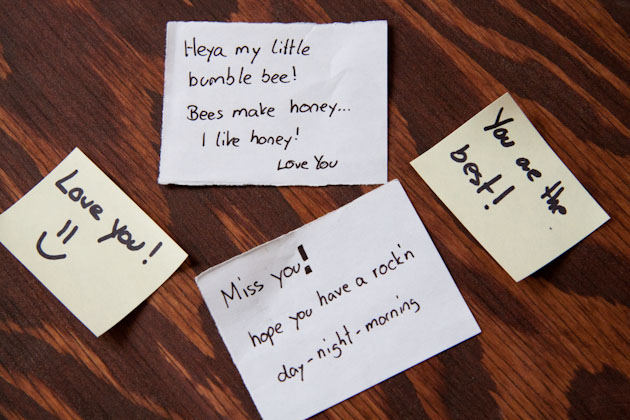 Heya my little
bumble bee!
Bees make honey...
I like honey!
Love You
Love you!
You are the
best!
Miss you!
hope you have a rock'n
day-night-morning